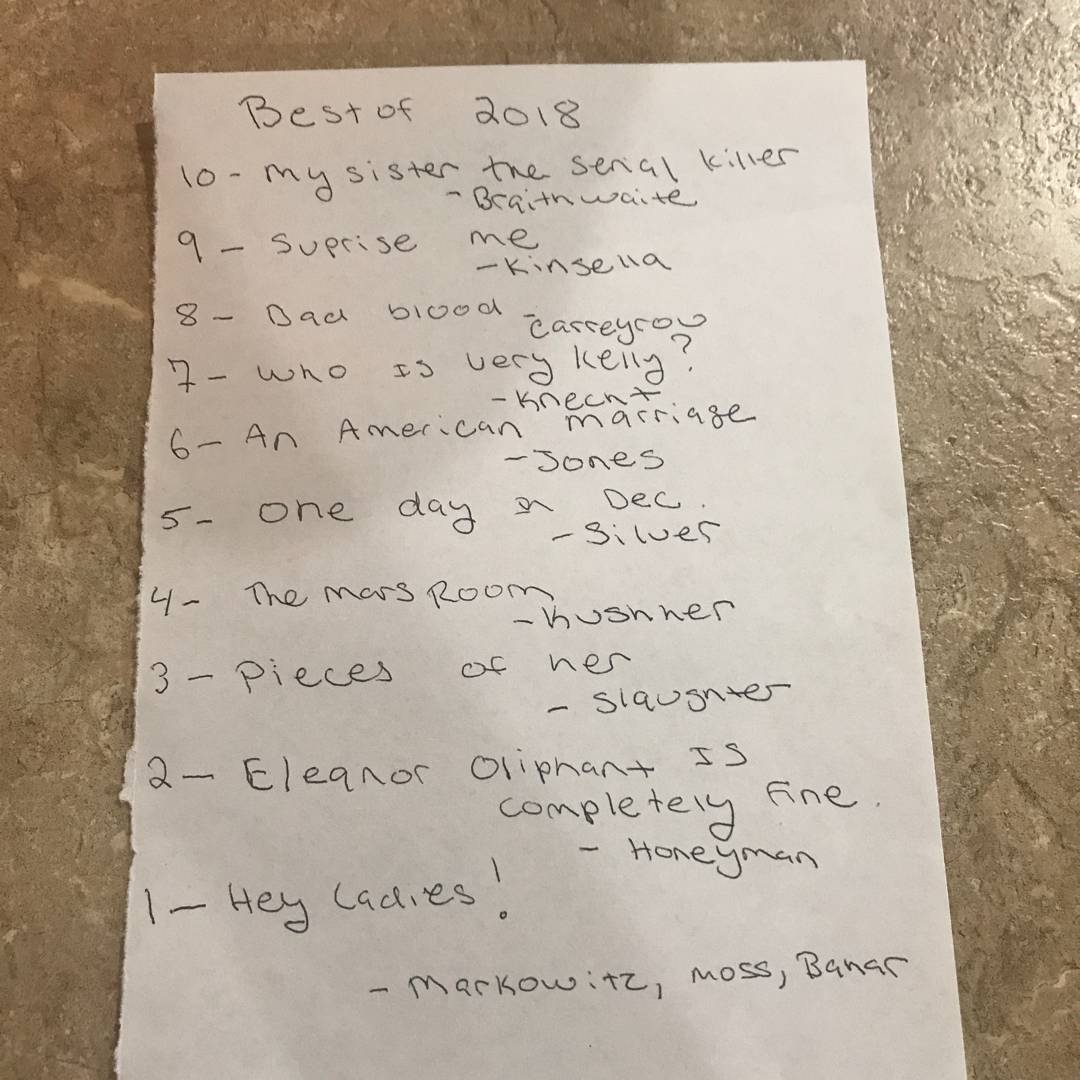 Best of 2018
10 - my sister the serial killer
- Braithwaite
9 - Suprise me
- Kinsella
8 - Bad blood - Carreyrou
7 - Who Is Very Kelly?
- Knecht
6 - An American marriage
- Jones
5 - One day in Dec.
- Silver
4 - The mars Room
- Kushner
3 - Pieces of her
- Slaughter
2 - Eleanor Oliphant Is
completely Fine.
- Honeyman
1 - Hey Ladies!
- Markowitz, moss, Banar